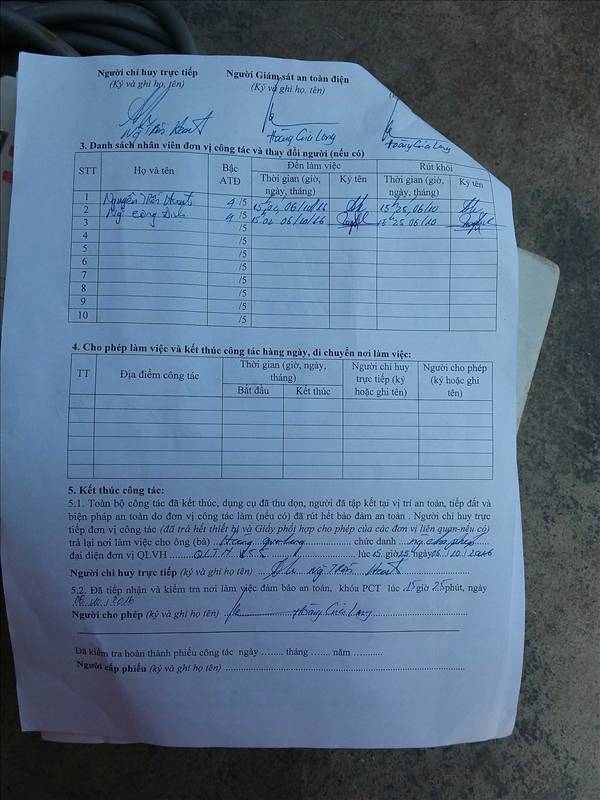 Người chỉ huy trực tiếp Người Giám sát an toàn điện
(Ký và ghi họ, tên) (Ký và ghi họ, tên)
Hoàng Cửu Long Hoàng Cửu Long
3. Danh sách nhân viên đơn vị công tác và thay đổi người (nếu có)
STT Họ và tên Bậc ATĐ Đến làm việc Rút khỏi
Thời gian (giờ, ngày, tháng) Ký tên Thời gian (giờ, ngày, tháng) Ký tên
1 Nguyễn 4 /5 06/10/16 15h25, 06/10
2 /5
3 Ng Công 4 /5 15h02 06/10/16 15h25 06/10
4 /5
5 /5
6 /5
7 /5
8 /5
9 /5
10 /5
4. Cho phép làm việc và kết thúc công tác hàng ngày, di chuyển nơi làm việc:
TT Địa điểm công tác Thời gian (giờ, ngày, tháng) Người chỉ huy trực tiếp (ký hoặc ghi tên) Người cho phép (ký hoặc ghi tên)
Bắt đầu Kết thúc
5. Kết thúc công tác:
5.1. Toàn bộ công tác đã kết thúc, dụng cụ đã thu dọn, người đã tập kết tại vị trí an toàn, tiếp đất và
biện pháp an toàn do đơn vị công tác làm (nếu có) đã rút hết bảo đảm an toàn . Người chỉ huy trực
tiếp đơn vị công tác (đã trả hết thiết bị và Giấy phối hợp cho phép của các đơn vị liên quan-nếu có)
trả lại nơi làm việc cho ông (bà) Hoàng Cửu Long chức danh ng cho phép
đại diện đơn vị QLVH lúc 15 giờ 25 ngày 06 / 10 / 2016
Người chỉ huy trực tiếp (ký và ghi họ tên)
5.2. Đã tiếp nhận và kiểm tra nơi làm việc đảm bảo an toàn, khóa PCT lúc 15 giờ 25 phút, ngày
06 / 10 / 2016
Người cho phép (ký và ghi họ tên) Hoàng Cửu Long
Đã kiểm tra hoàn thành phiếu công tác ngày ........ tháng ....... năm ..........
Người cấp phiếu (ký và ghi họ tên)